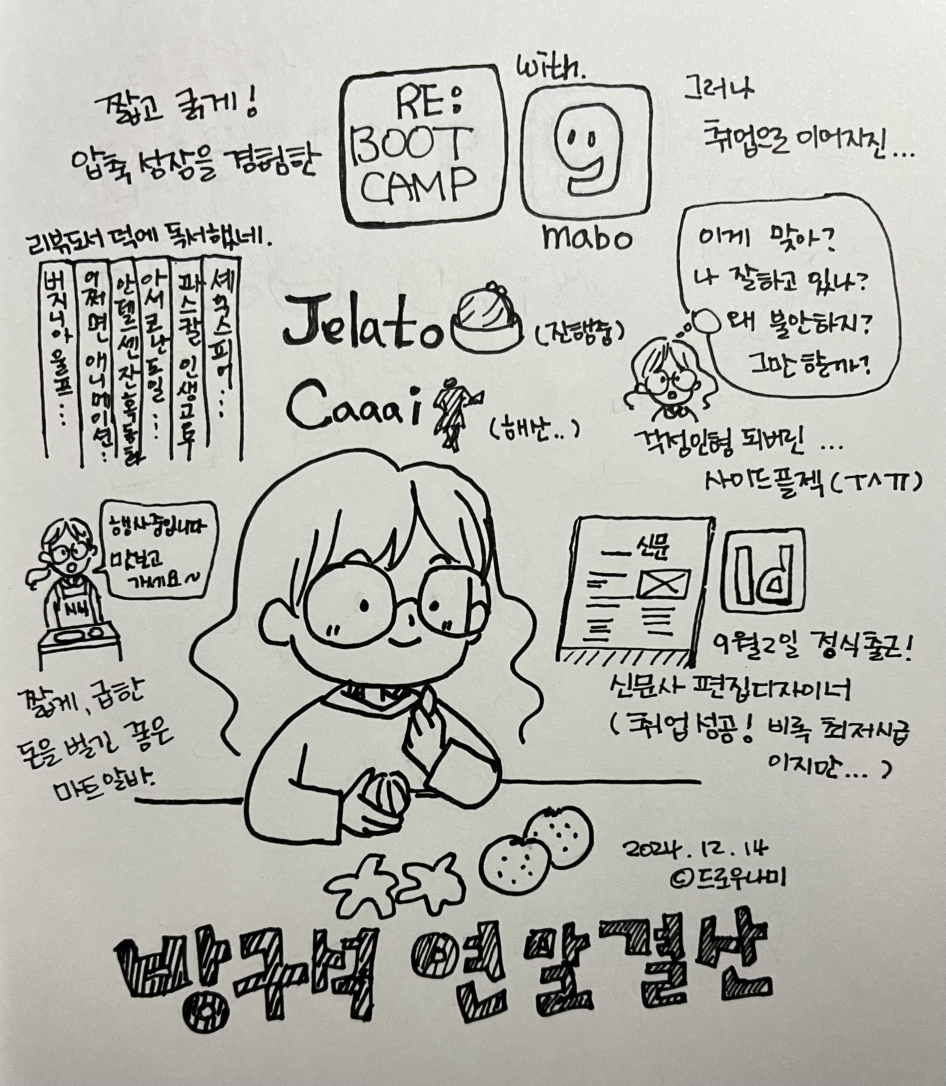 짧고 굵게!
압축 성장을 경험한
RE:
BOOT
CAMP
with.
mabo
그러나
취업으로 이어지진...
리뷰도서 덕에 독서했네.
버지니아 울프...
어쩌면 애니메이션...
안델센 잔혹동화
아서 코난 도일...
파스칼 인생공부
셰익스피어...
Jelato
(진행중)
Caaai
(해산..)
이게 맞아?
나 잘하고 있나?
왜 불안하지?
그만 할까?
걱정인형 되버린 ...
사이드플젝(ㅜㅅㅠ)
행사중입니다
맛보고
가세요~
짧게, 급한
돈을 벌긴 좋은
마트알바.
신문
Id
9월2일 정식출근!
신문사 편집디자이너
(취업성공! 비록 최저시급
이지만...)
2024.12.14
©드로우나미
방구석 연말결산